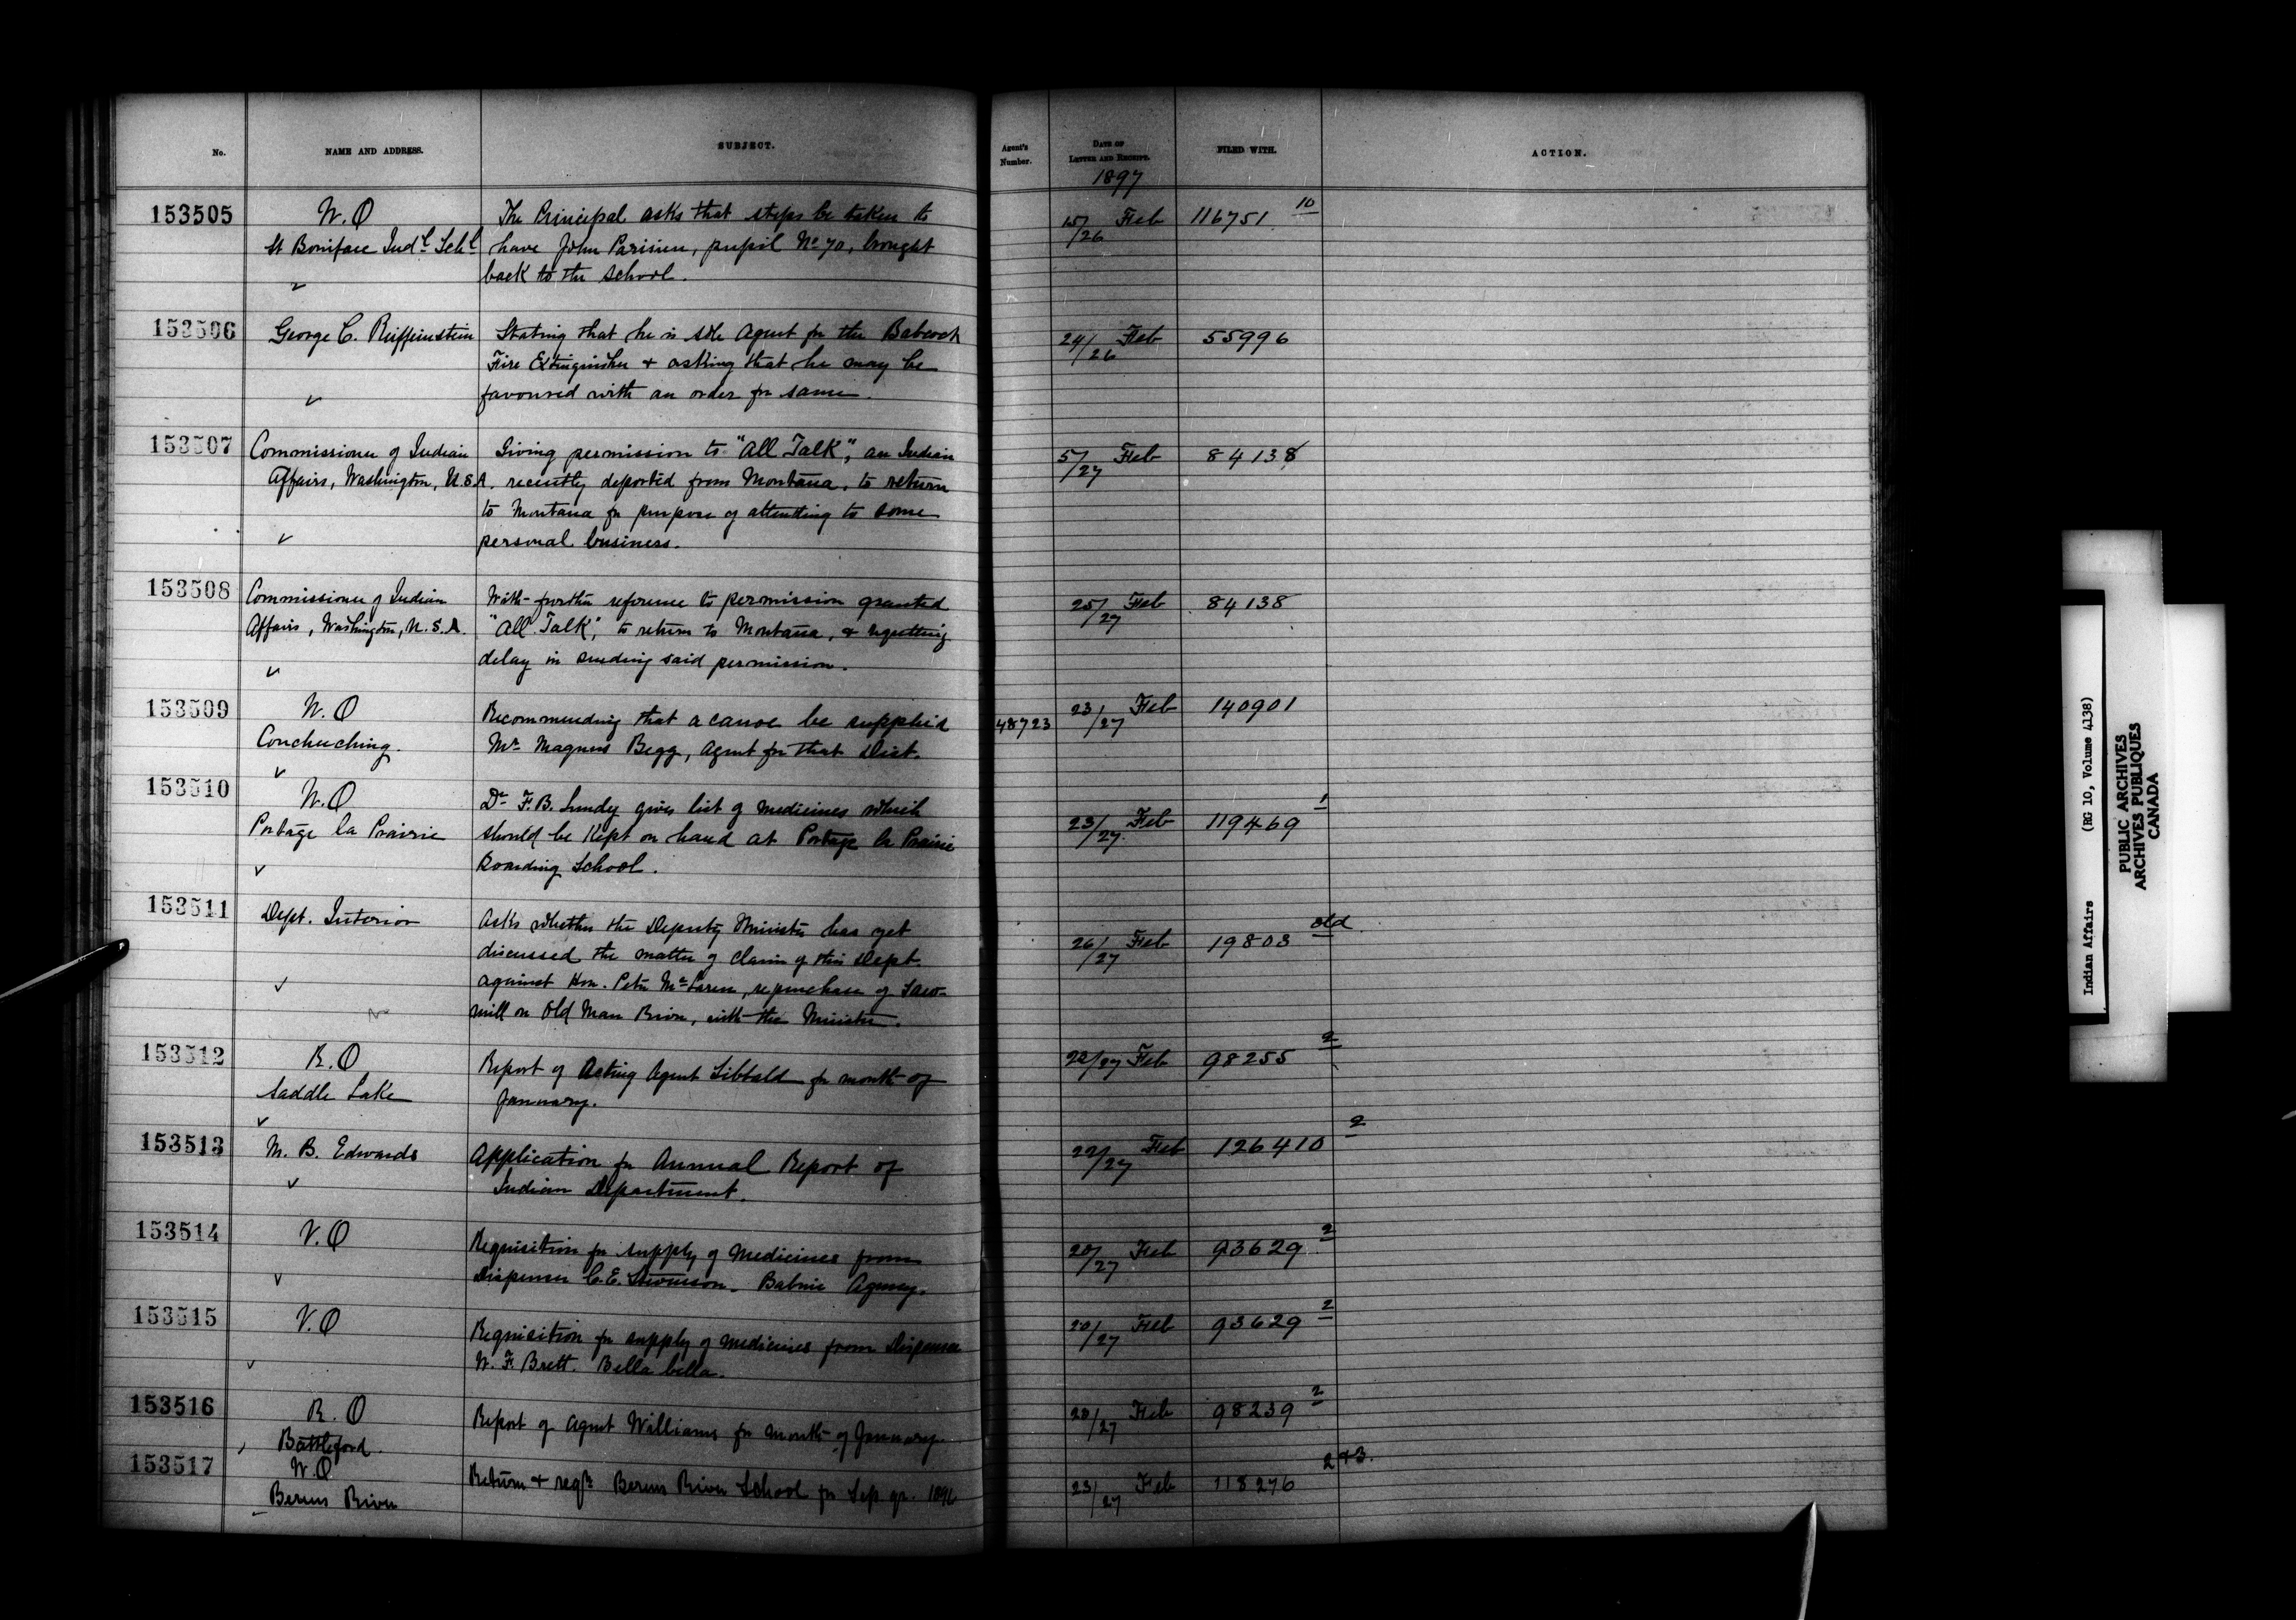 No. NAME AND ADDRESS. SUBJECT. Agent's Number. DATE OF LETTER AND RECEIPT. FILED WITH. ACTION.
1897
153505 W.O The Principal asks that steps be taken to 15/26 Feb 116751 10
St Boniface Indl Schl have John Parisien, pupil No 70, brought
back to the School.
153506 George C. Reiffenstein Stating that he is sole Agent for the Babcock 24/26 Feb 55996
Fire Extinguisher & asking that he may be
favoured with an order for same.
153507 Commissioner of Indian Giving permission to "All Talk", an Indian 5/27 Feb 84138
Affairs, Washington, U.S.A. recently deported from Montana, to return
to Montana for purpose of attending to some
personal business.
153508 Commissioner of Indian With further reference to permission granted 25/27 Feb 84138
Affairs, Washington, U.S.A. "All Talk", to return to Montana, & regretting
delay in sending said permission.
153509 W.O Recommending that a canoe be supplied 48723 23/27 Feb 140901
Couchuching. Mr Magnus Begg, Agent for that Dist.
153510 W.O Dr F.B. Lundy gives list of medicines which 23/27 Feb 119469 1
Portage la Prairie should be kept on hand at Portage la Prairie
Boarding School.
153511 Dept. Interior Asks whether the Deputy Minister has yet 26/27 Feb 19803 old
discussed the matter of claim of this Dept.
against Hon. Peter McLaren, re purchase of Saw-
mill on Old Man River, with the Minister.
153512 R.O Report of Acting Agent Sibbald for month of 22/27 Feb 98255 2
Saddle Lake January.
153513 M. B. Edwards Application for Annual Report of 22/27 Feb 126410 2
Indian Department.
153514 V.O Requisition for supply of medicines from 20/27 Feb 93629 2
Dispenser C.E. Stevenson. Babine Agency.
153515 V.O Requisition for supply of medicines from Dispenser 20/27 Feb 93629 2
W. F. Brett. Bella bella.
153516 R.O Report of Agent Williams for month of January 20/27 Feb 98239 2
Battleford.
153517 W.O Return & reqn Berens River School for Sep. qr. 1896 23/27 Feb 118276 2 & 3.
Berens River
Indian Affairs (RG 10, Volume 4138)
PUBLIC ARCHIVES
ARCHIVES PUBLIQUES
CANADA